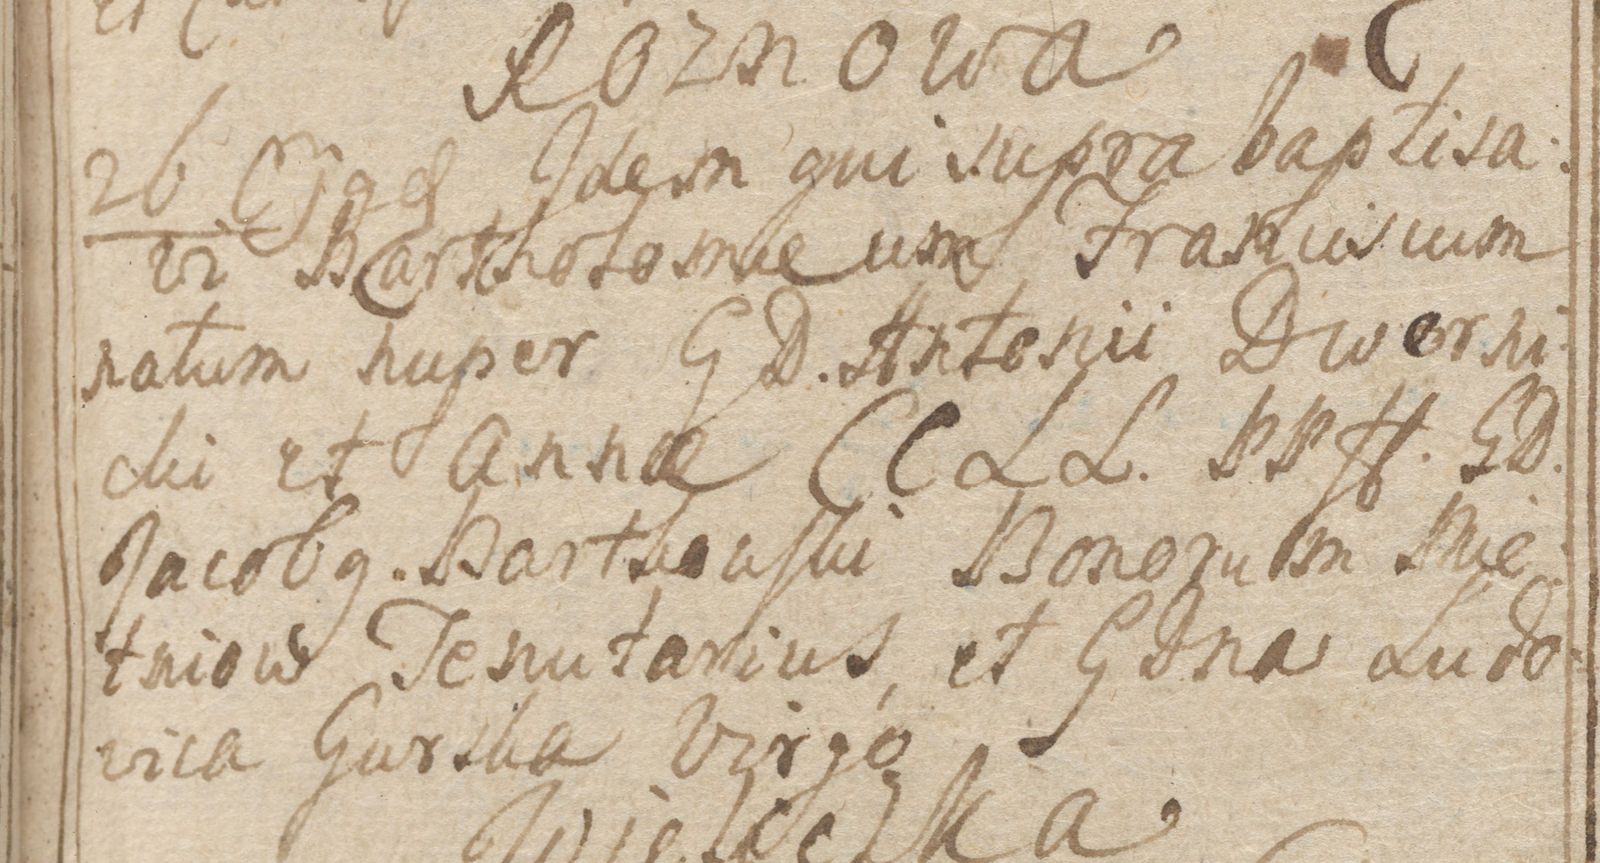 Roznowa
26 Ejqd Idem qui supra baptisa:
vi Bartholomeum Franciscum
natum nuper G D. Antonii Dworni:
cki et Annæ CC LL. PP ff. GD.
Jacobq. Bartkouski Bonorum Pie:
tniow Tenutarius, et GDna Ludo-
vica Gurska Virgo